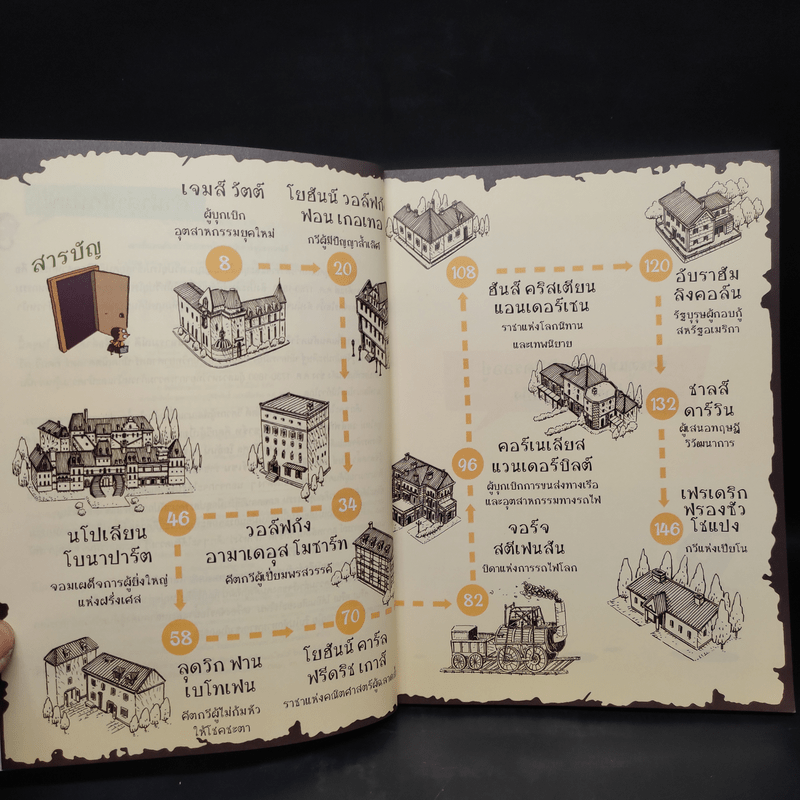 สารบัญ
เจมส์ วัตต์
ผู้บุกเบิก
อุตสาหกรรมยุคใหม่
8
โยฮันน์ วอล์ฟกัง
ฟอน เกอเทอ
กวีผู้มีปัญญาล้ำเลิศ
20
34
วอล์ฟกัง
อามาเดอุส โมซาร์ท
คีตกวีผู้เปี่ยมพรสวรรค์
46
นโปเลียน
โบนาปาร์ต
จอมเผด็จการผู้ยิ่งใหญ่
แห่งฝรั่งเศส
58
ลุดวิก ฟาน
เบโทเฟน
คีตกวีผู้ไม่ก้มหัว
ให้โชคชะตา
70
โยฮันน์ คาร์ล
ฟรีดริช เกาส์
ราชาแห่งคณิตศาสตร์
82
จอร์จ
สตีเฟนสัน
บิดาแห่งการรถไฟโลก
96
คอร์เนเลียส
แวนเดอร์บิลต์
ผู้บุกเบิกการขนส่งทางเรือ
และอุตสาหกรรมทางรถไฟ
108
ฮันส์ คริสเตียน
แอนเดอร์เซน
ราชาแห่งโลกนิทาน
และเทพนิยาย
120
อับราฮัม
ลิงคอล์น
รัฐบุรุษผู้กอบกู้
สหรัฐอเมริกา
132
ชาลส์
ดาร์วิน
ผู้เสนอทฤษฎี
วิวัฒนาการ
146
เฟรเดริก
ฟรองซัว
โชแปง
กวีแห่งเปียโน